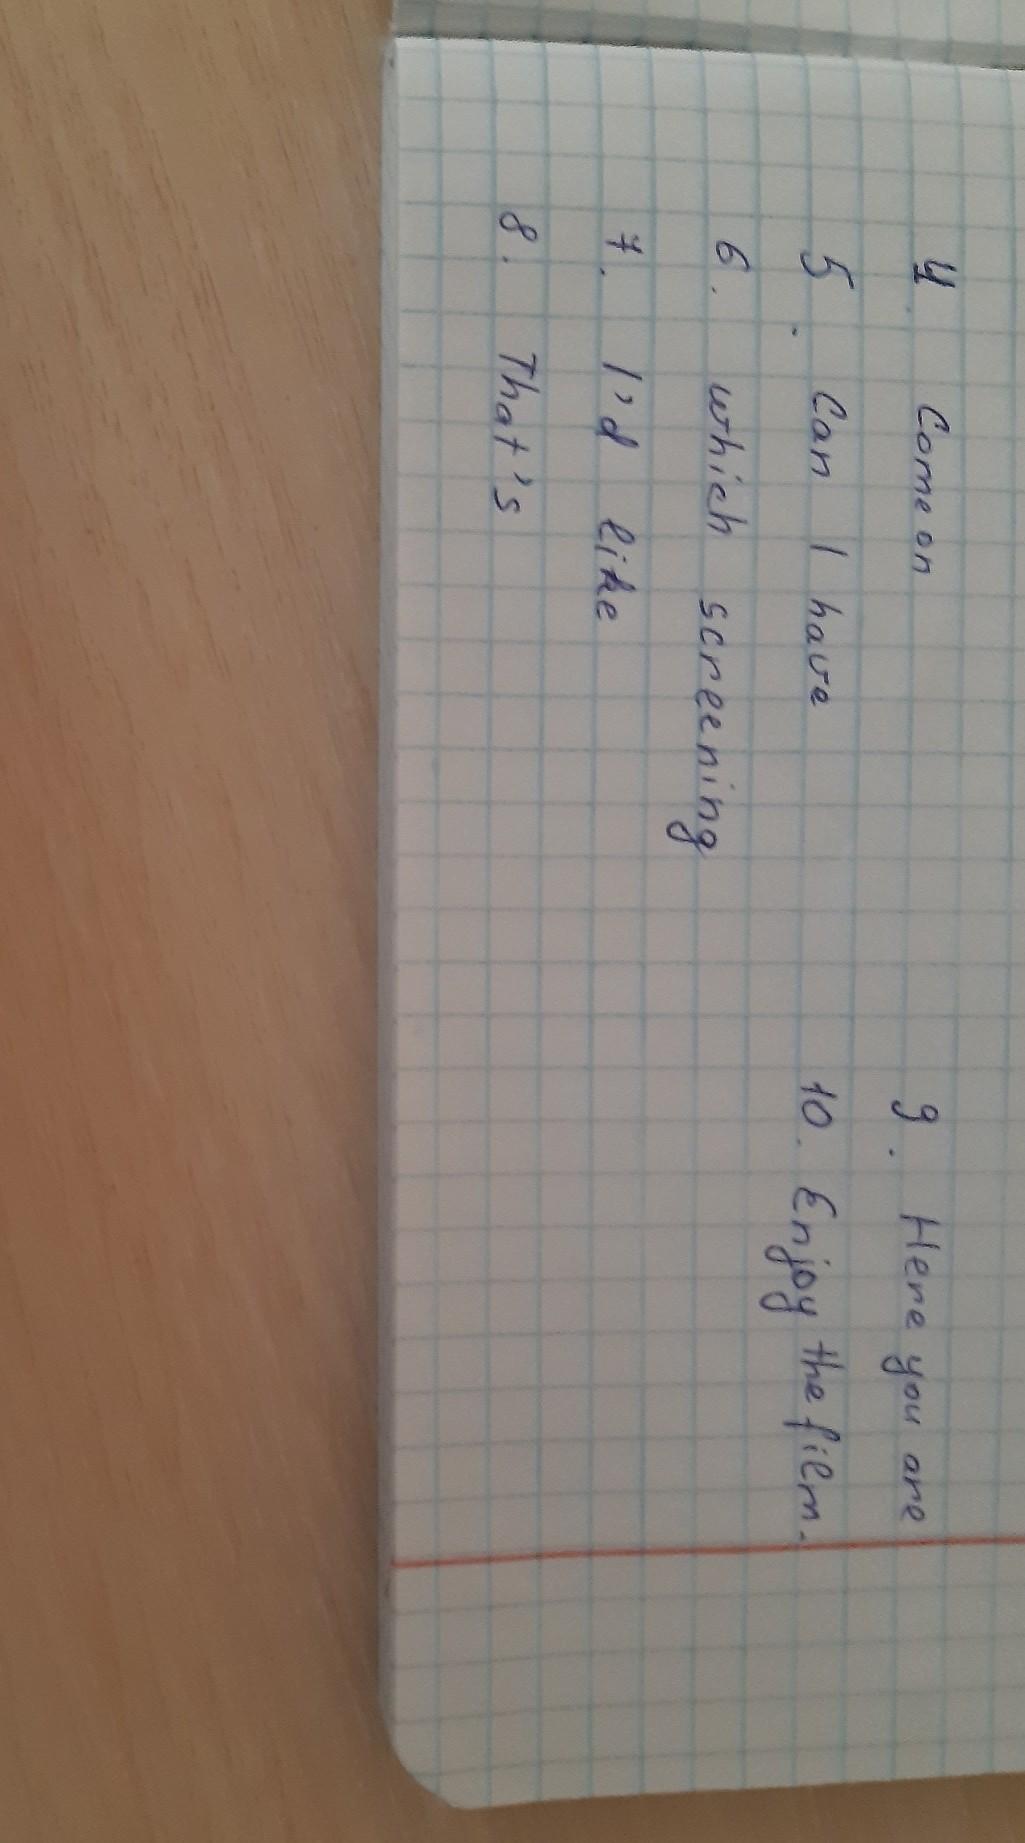 4. Come on
5. Can I have
6. which screening
7. I'd like
8. That's
9. Here you are
10. Enjoy the film.